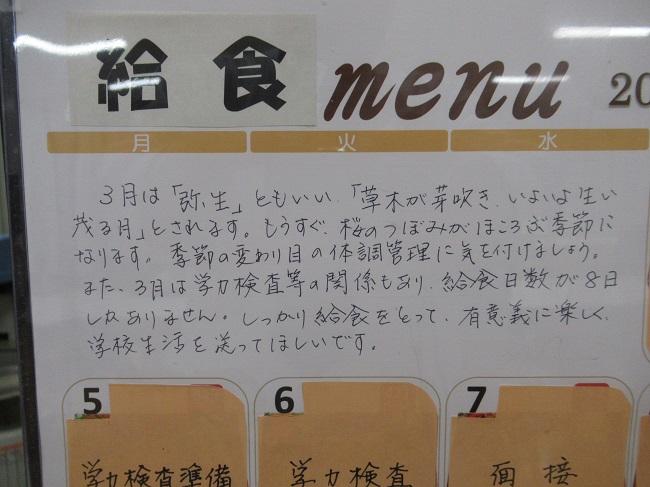 給食 menu 20
月 火 水
3月は「弥生」ともいい、「草木が芽吹き、いよいよ生い
茂る月」とされます。もうすぐ、桜のつぼみがほころぶ季節に
なります。季節の変わり目の体調管理に気を付けましょう。
また、3月は学力検査等の関係もあり、給食日数が8日
しかありません。しっかり給食をとって、有意義に楽しく、
学校生活を送ってほしいです。
5 6 7
学力検査準備 学力検査 面接